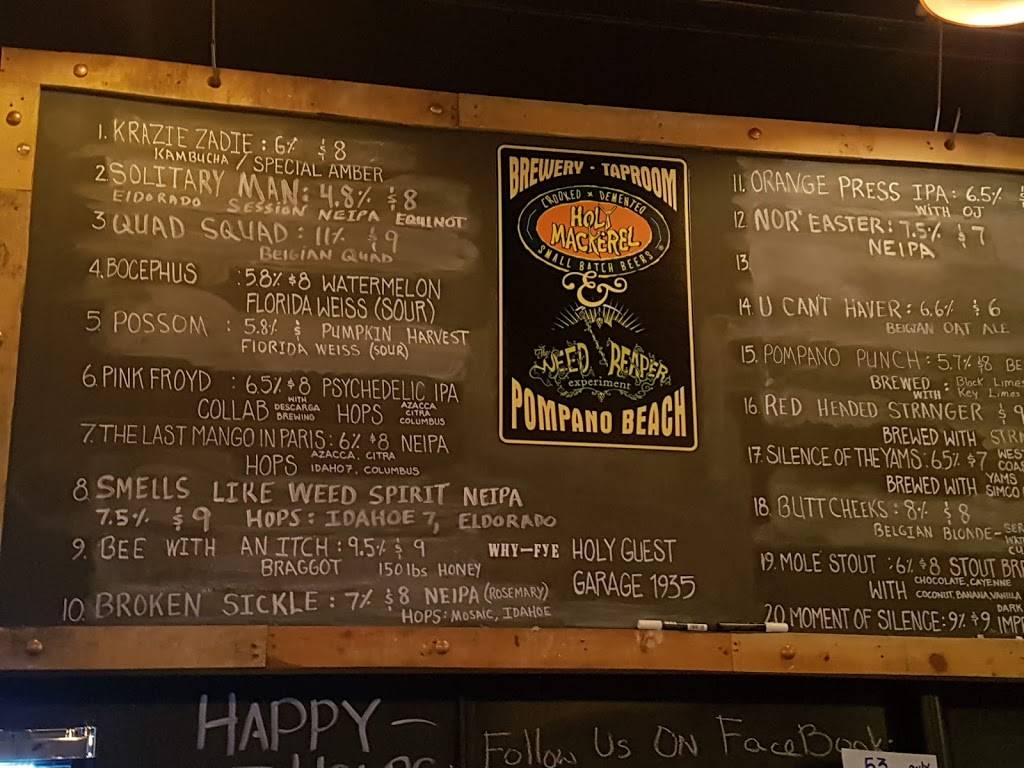 1. KRAZIE ZADIE : 6% $8
KAMBUCHA / SPECIAL AMBER
2. SOLITARY MAN : 4.8% $8
ElDORADO SESSION NEIPA EQUINOT
3 QUAD SQUAD : 11% $9
BElGIAN QUAD
4. BOCEPHUS : 5.8% $8 WATERMELON
FLORIDA WEISS (SOUR)
5. POSSOM : 5.8% $ PUMPKIN HARVEST
FlORIDA WEISS (SOUR)
6. PINK FROYD : 6.5% $8 PSYCHEDELIC IPA
COLLAB WITH DESCARGA BREWING HOPS AZACCA CITRA COLUMBUS
7. THE LAST MANGO IN PARIS : 6% $8 NEIPA
HOPS AZACCA, CITRA
IDAHO7, COLUMBUS
8. SMELLS LIKE WEED SPIRIT NEIPA
7.5% $9 HOPS : IDAHOE 7, ELDORADO
9. BEE WITH AN ITCH : 9.5% $9
BRAGGOT 150 lbs HONEY
10. BROKEN SICKLE : 7% $8 NEIPA (ROSEMARY)
HOPS : MOSAIC, IDAHOE
BREWERY - TAPROOM
CROOKED & DEMENTED
HOLY
MACKEREL
SMALL BATCH BEERS
&
The WEED REAPER
experiment
POMPANO BEACH
WHY-FYE HOLY GUEST
GARAGE 1935
11. ORANGE PRESS IPA : 6.5%
WITH OJ
12 NOR' EASTER : 7.5% $7
NEIPA
13.
14. U CAN'T HAVER : 6.6% $6
BElGIAN OAT ALE
15. POMPANO PUNCH : 5.7% $8 BE
BREWED WITH : Black Limes
Key Limes
16. RED HEADED STRANGER $9
BREWED WITH STR
17. SILENCE OF THE YAMS : 6.5% $7 WEST
COA
BREWED WITH YAMS
SIMCO
18. BUTTCHEEKS : 8% $8
BELGIAN BLONDE -
19. MOLE STOUT : 6% $8 STOUT BR
WITH CHOCOLATE, CAYENNE
COCONUT, BANANA, VANILLA
20 MOMENT OF SILENCE : 9% $9 DARK
IMP
HAPPY -
Follow Us ON FaceBook
53